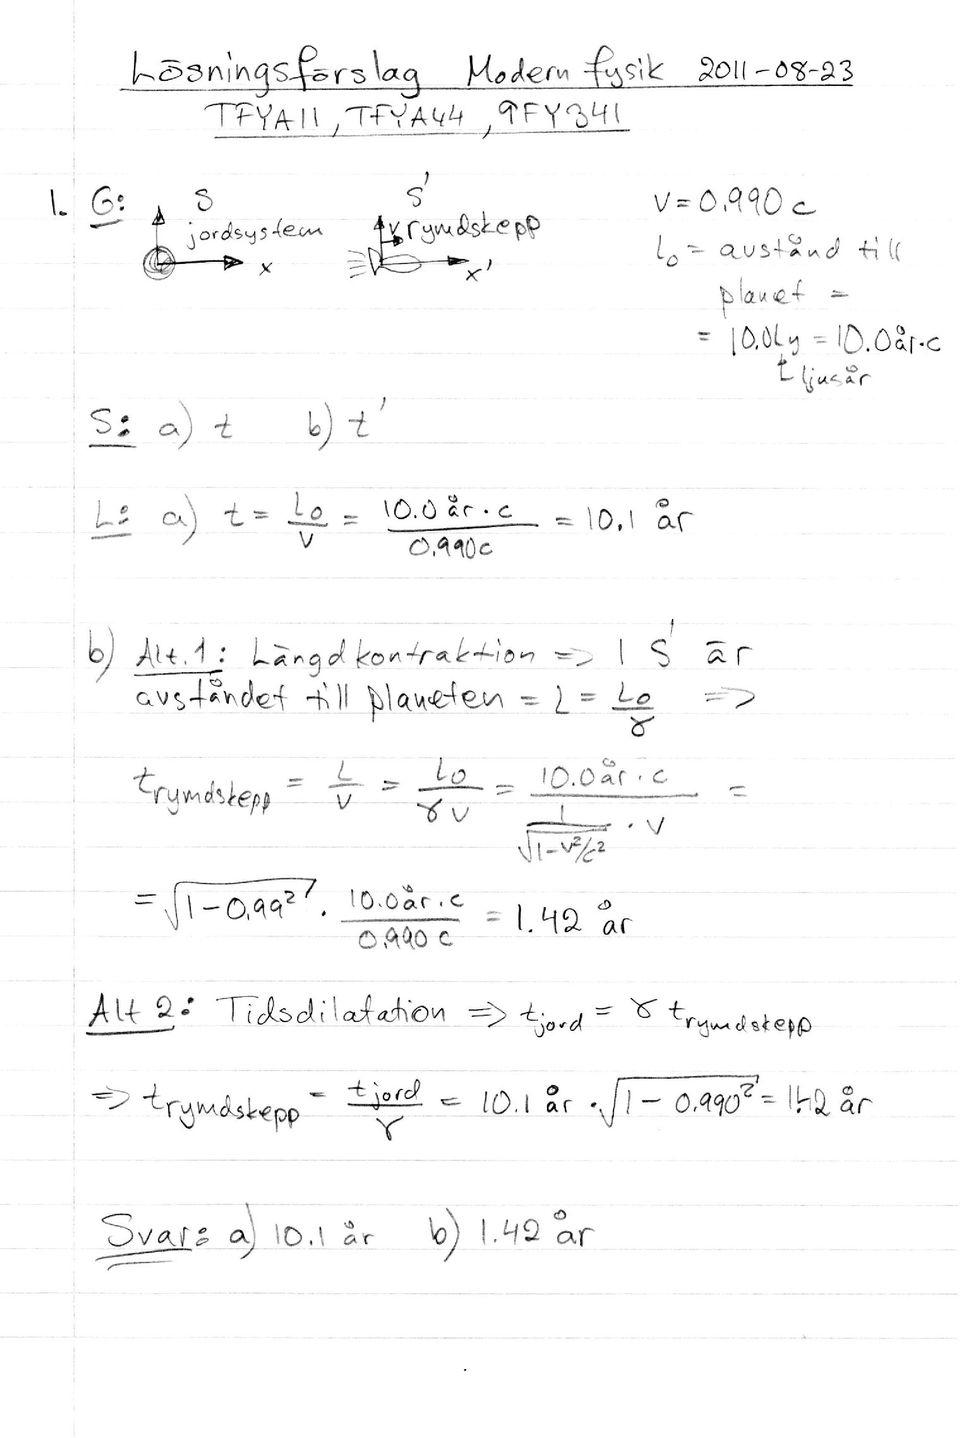 Lösningsförslag Modern fysik 2011-08-23
TFYA11, TFYA44, 9FY341
1. G: S S' v = 0.990 c
jordsystem v rymdskepp L₀ = avstånd till
x x' planet =
= 10.0 Ly = 10.0 år·c
t ljusår
S: a) t b) t'
L: a) t = L₀/v = 10.0 år · c / 0.990c = 10.1 år
b) Alt. 1: Längdkontraktion => I S' är
avståndet till planeten = L = L₀/γ =>
t_rymdskepp = L/v = L₀/γv = 10.0 år · c / (1/√(1-v²/c²) · v) =
= √(1-0.99²) · 10.0 år · c / 0.990 c = 1.42 år
Alt 2: Tidsdilatation => t_jord = γ t_rymdskepp
=> t_rymdskepp = t_jord/γ = 10.1 år · √(1 - 0.990²) = 1.42 år
Svar: a) 10.1 år b) 1.42 år